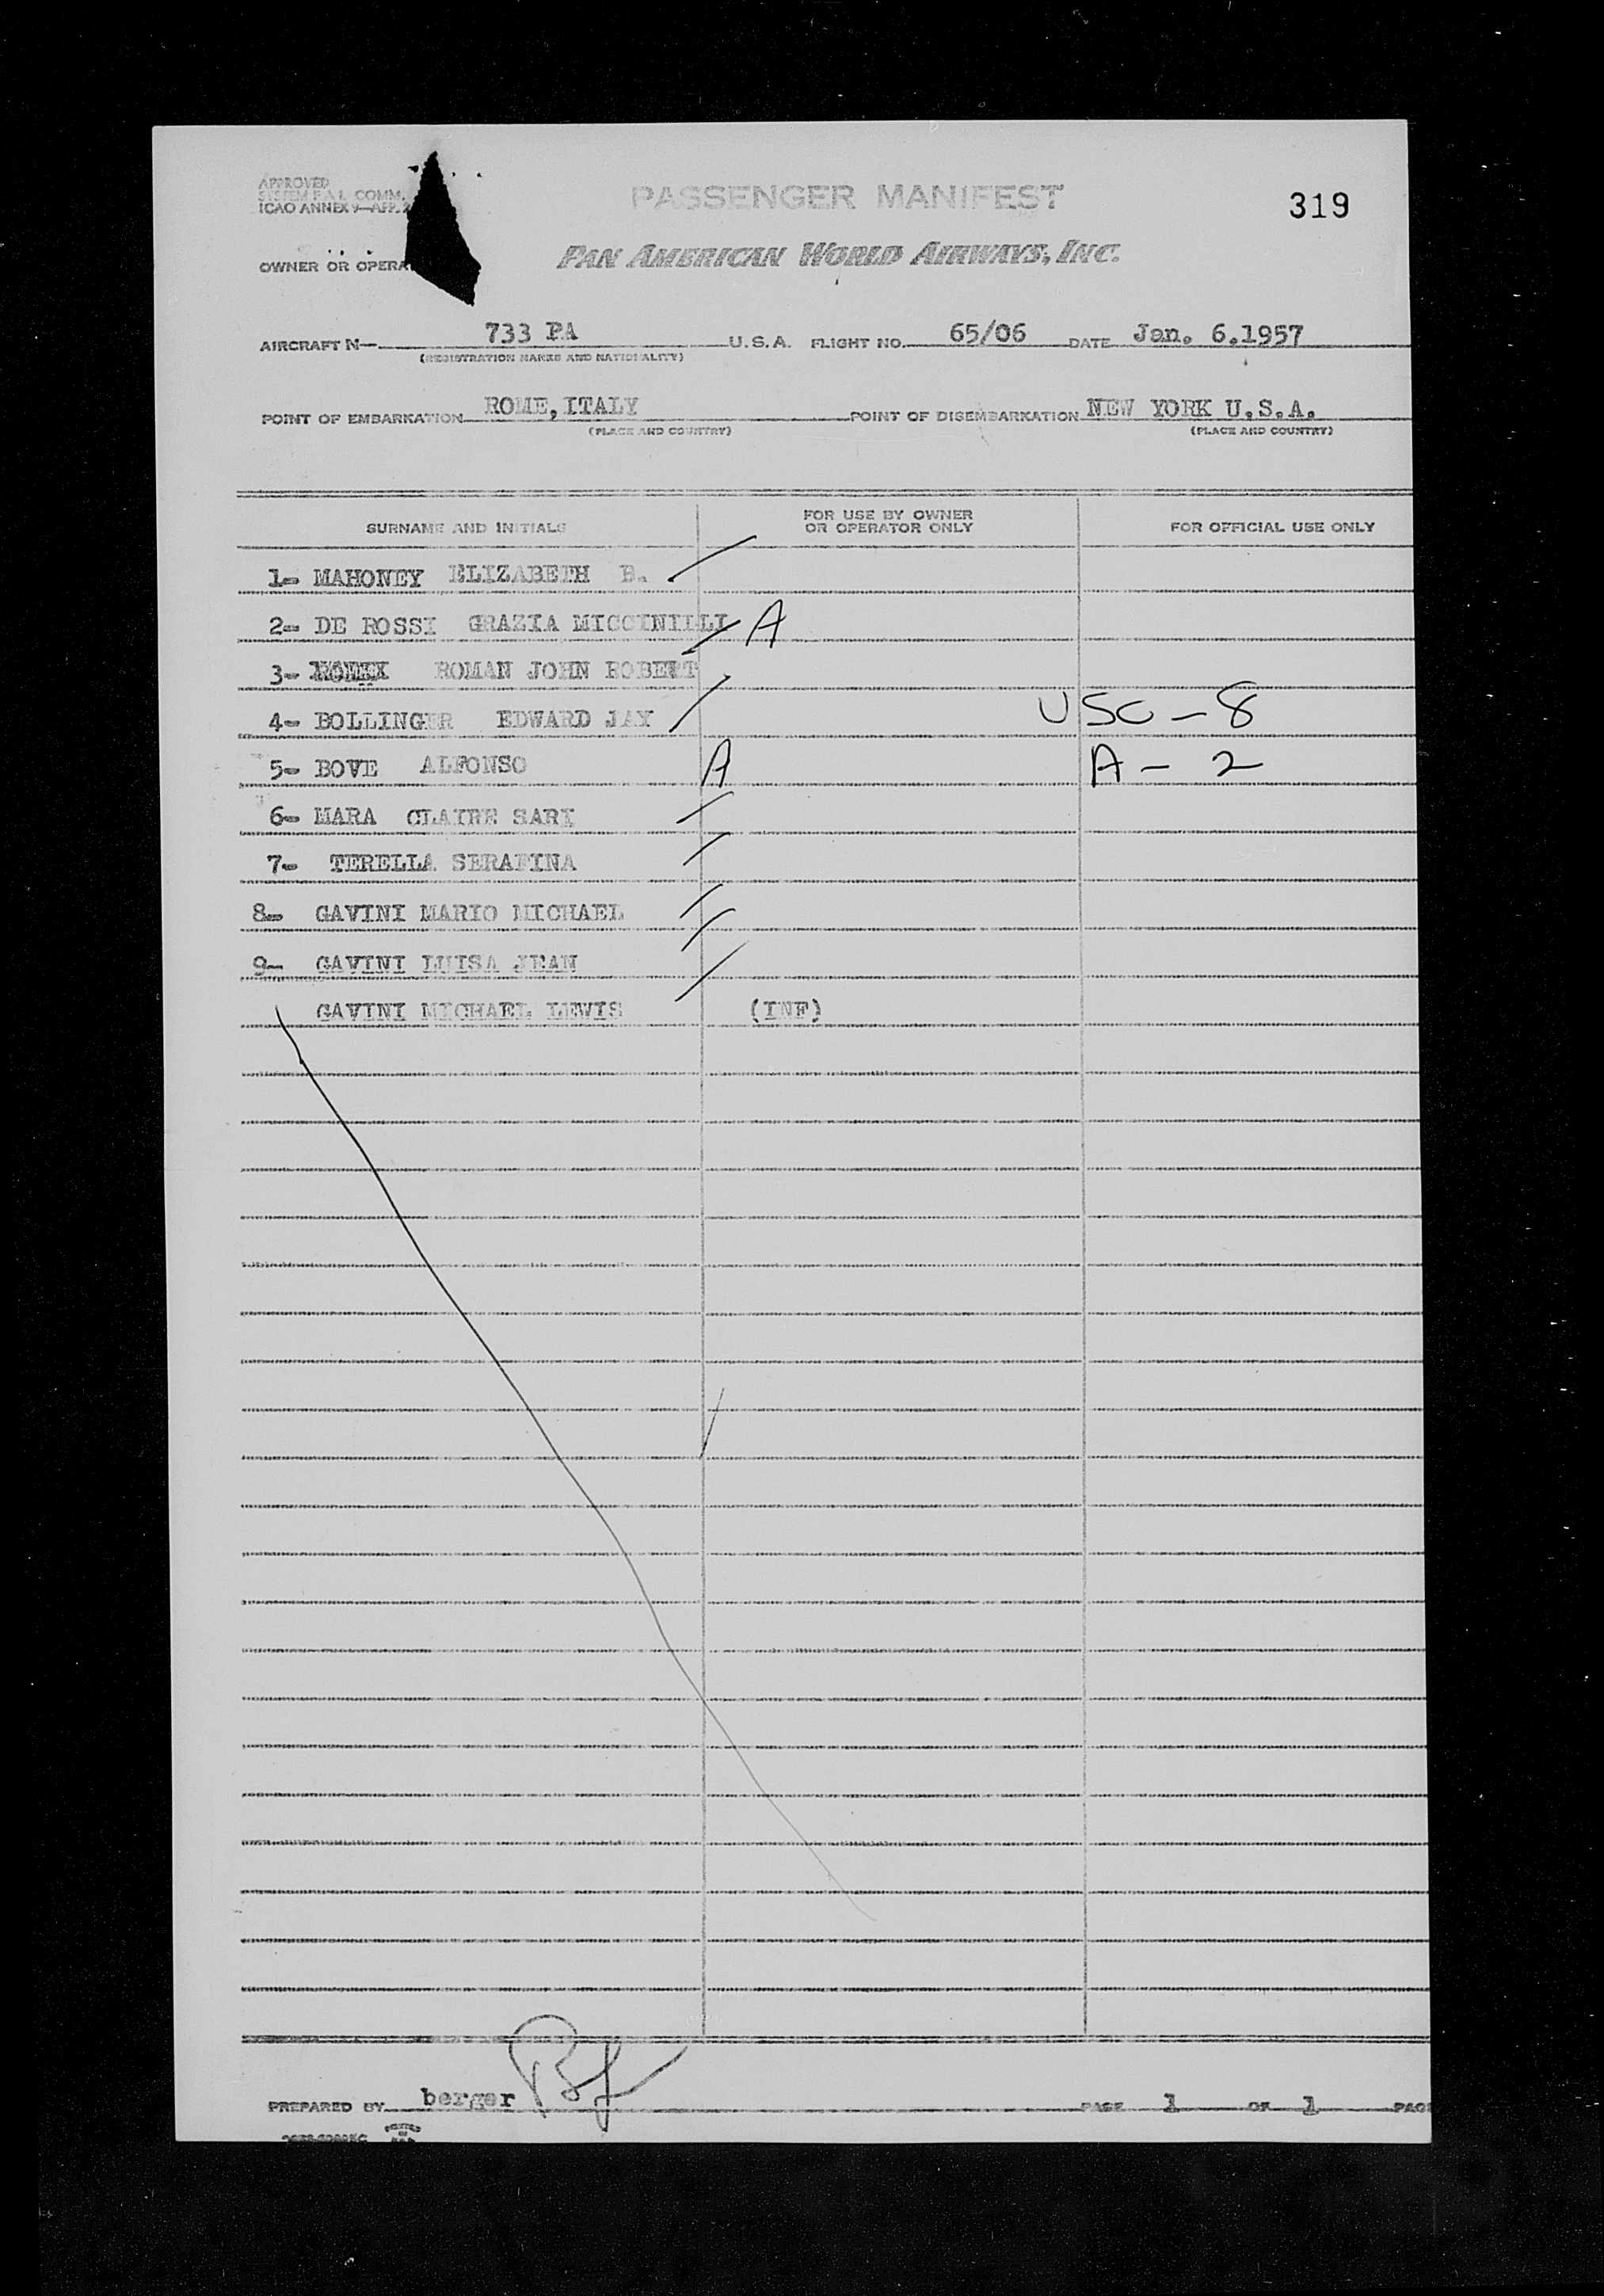 APPROVED
SYSTEM F.A.L. COMM.
ICAO ANNEX 9—APP. 2
PASSENGER MANIFEST
319
OWNER OR OPERA
PAN AMERICAN WORLD AIRWAYS, INC.
AIRCRAFT N— 733 PA U.S.A. FLIGHT NO. 65/06 DATE Jan. 6.1957
(REGISTRATION MARKS AND NATIONALITY)
POINT OF EMBARKATION ROME, ITALY POINT OF DISEMBARKATION NEW YORK U.S.A.
(PLACE AND COUNTRY) (PLACE AND COUNTRY)
SURNAME AND INITIALS FOR USE BY OWNER OR OPERATOR ONLY FOR OFFICIAL USE ONLY
1- MAHONEY ELIZABETH B.
2- DE ROSSI GRAZIA MICCINILLI A
3- ROMAN JOHN ROBERT
4- BOLLINGER EDWARD JAY USC - 8
5- BOVE ALFONSO A A - 2
6- MARA CLAIRE SARI
7- TERELLA SERAFINA
8- GAVINI MARIO MICHAEL
9- GAVINI LUISA JEAN
GAVINI MICHAEL LEWIS (INF)
PREPARED BY berger PAGE 1 OF 1 PAG